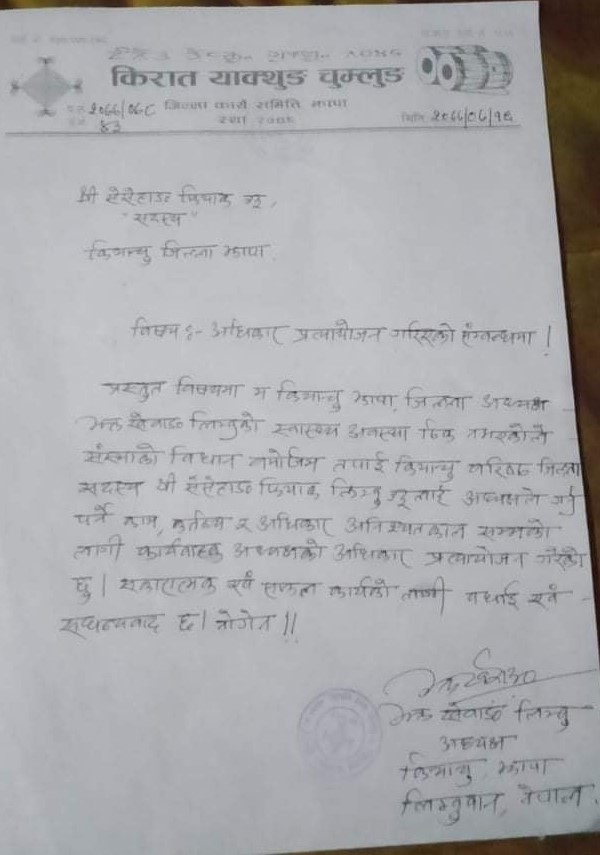 किरात याक्थुङ चुम्लुङ
जिल्ला कार्य समिति झापा
प.सं. २०६६/०६८
च.नं. ४३
मिति २०६६/०८/१६
श्री सेसेहाङ फियाक ज्यू,
"सदस्य"
कियाचु जिल्ला झापा
विषय :- अधिकार प्रत्यायोजन गरिएको सम्बन्धमा !
प्रस्तुत विषयमा म कियाचु झापा, जिल्ला अध्यक्ष
भक्त खेवाङ लिम्बुको स्वास्थ्य अवस्था ठिक नभएकोले
संस्थाको विधान बमोजिम तपाई कियाचु वरिष्ठ जिल्ला
सदस्य श्री सेसेहाङ फियाक लिम्बु ज्यूलाई अध्यक्षले गर्नु
पर्ने काम, कर्तव्य र अधिकार अनिश्चितकाल सम्मको
लागी कार्यवाहक अध्यक्षको अधिकार प्रत्यायोजन गरेको
छु । सकारात्मक एवं सफल कार्यको लागी बधाई एवं
सुधन्यवाद छ । सेवारो !!
भक्त खेवाङ लिम्बु
अध्यक्ष
कियाचु, झापा
लिम्बुवान, नेपाल